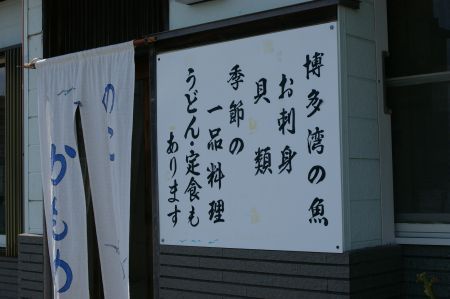 博多湾の魚
お刺身
貝類
季節の
一品料理
うどん・定食も
あります
のこ
かもめ